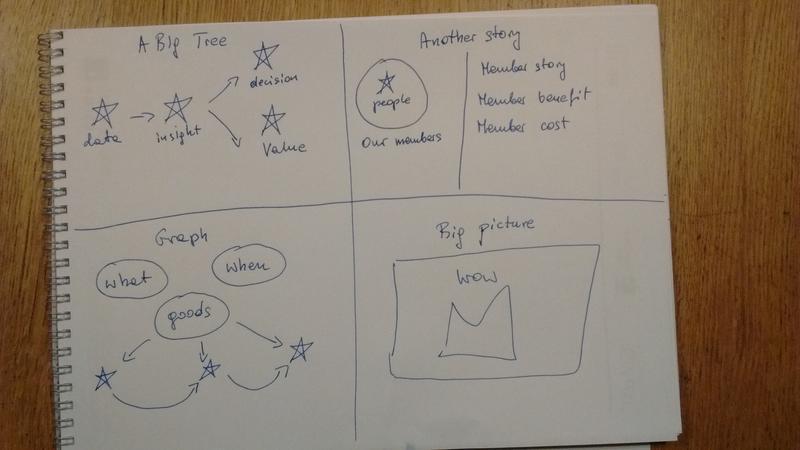 A Big Tree
data
insight
decision
Value
Another story
people
Our members
Member story
Member benefit
Member cost
Graph
what
when
goods
Big picture
WOW